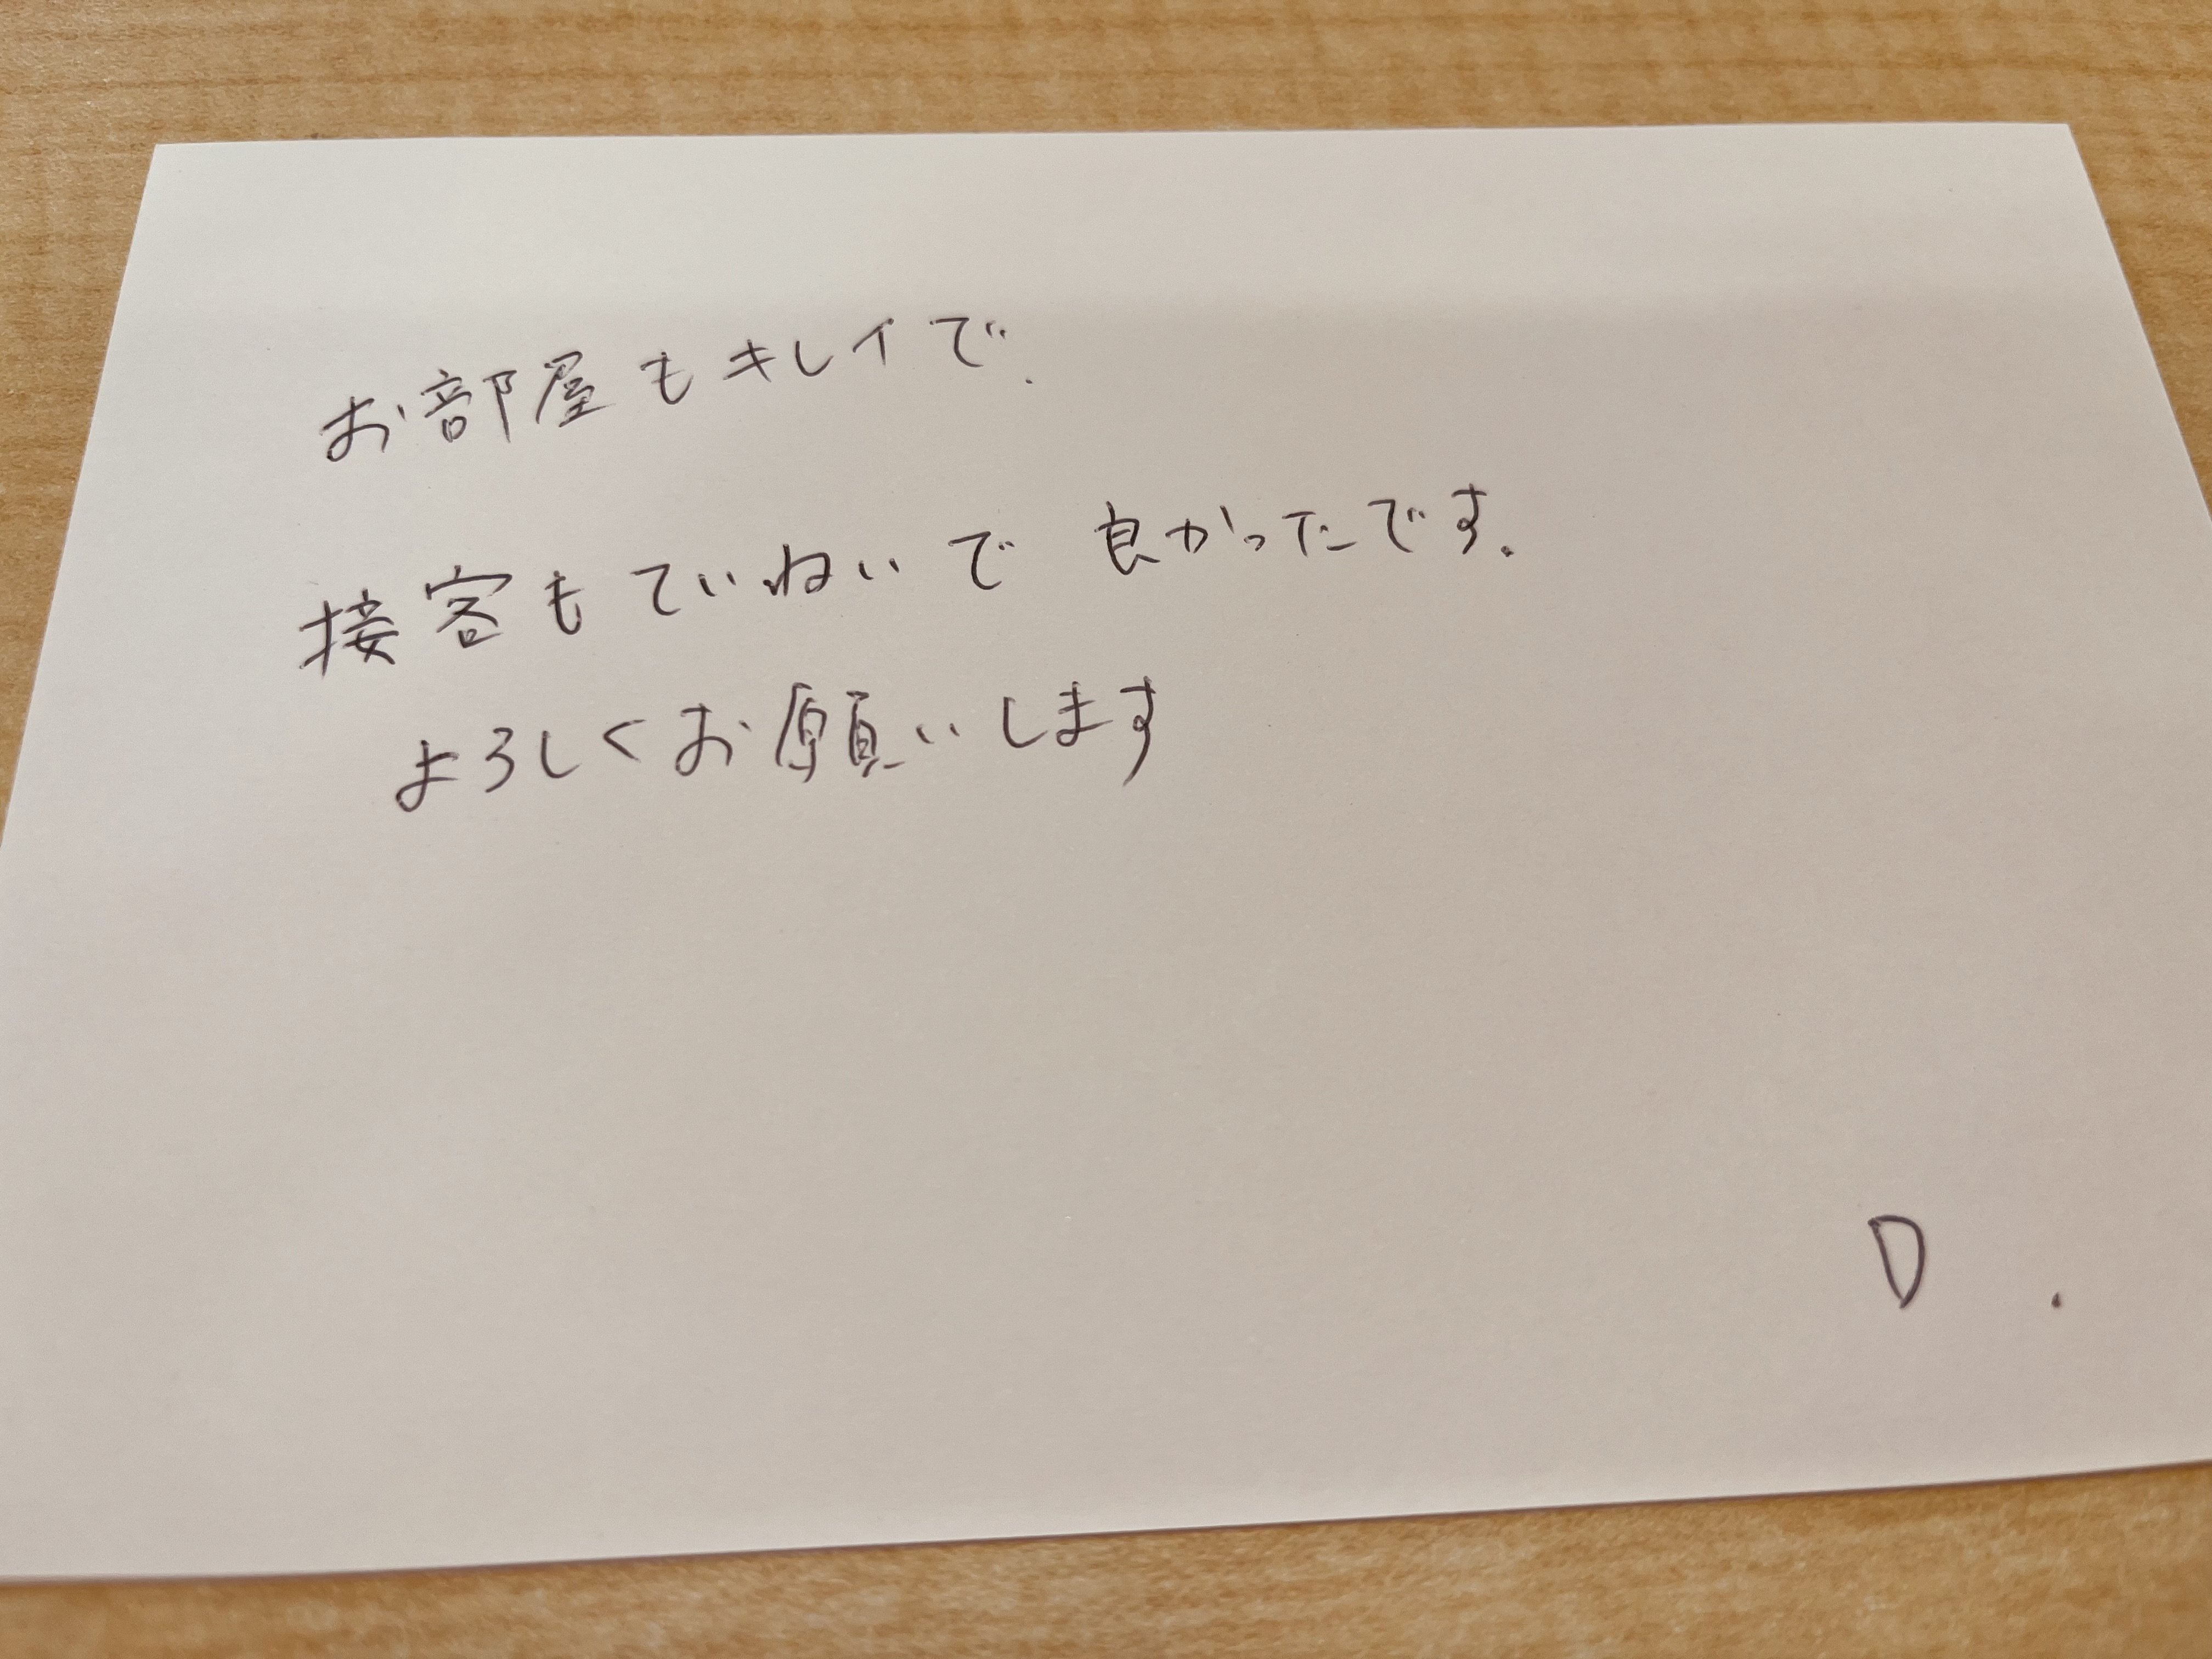 お部屋もキレイで.
接客もていねいで 良かったです.
よろしくお願いします
D .